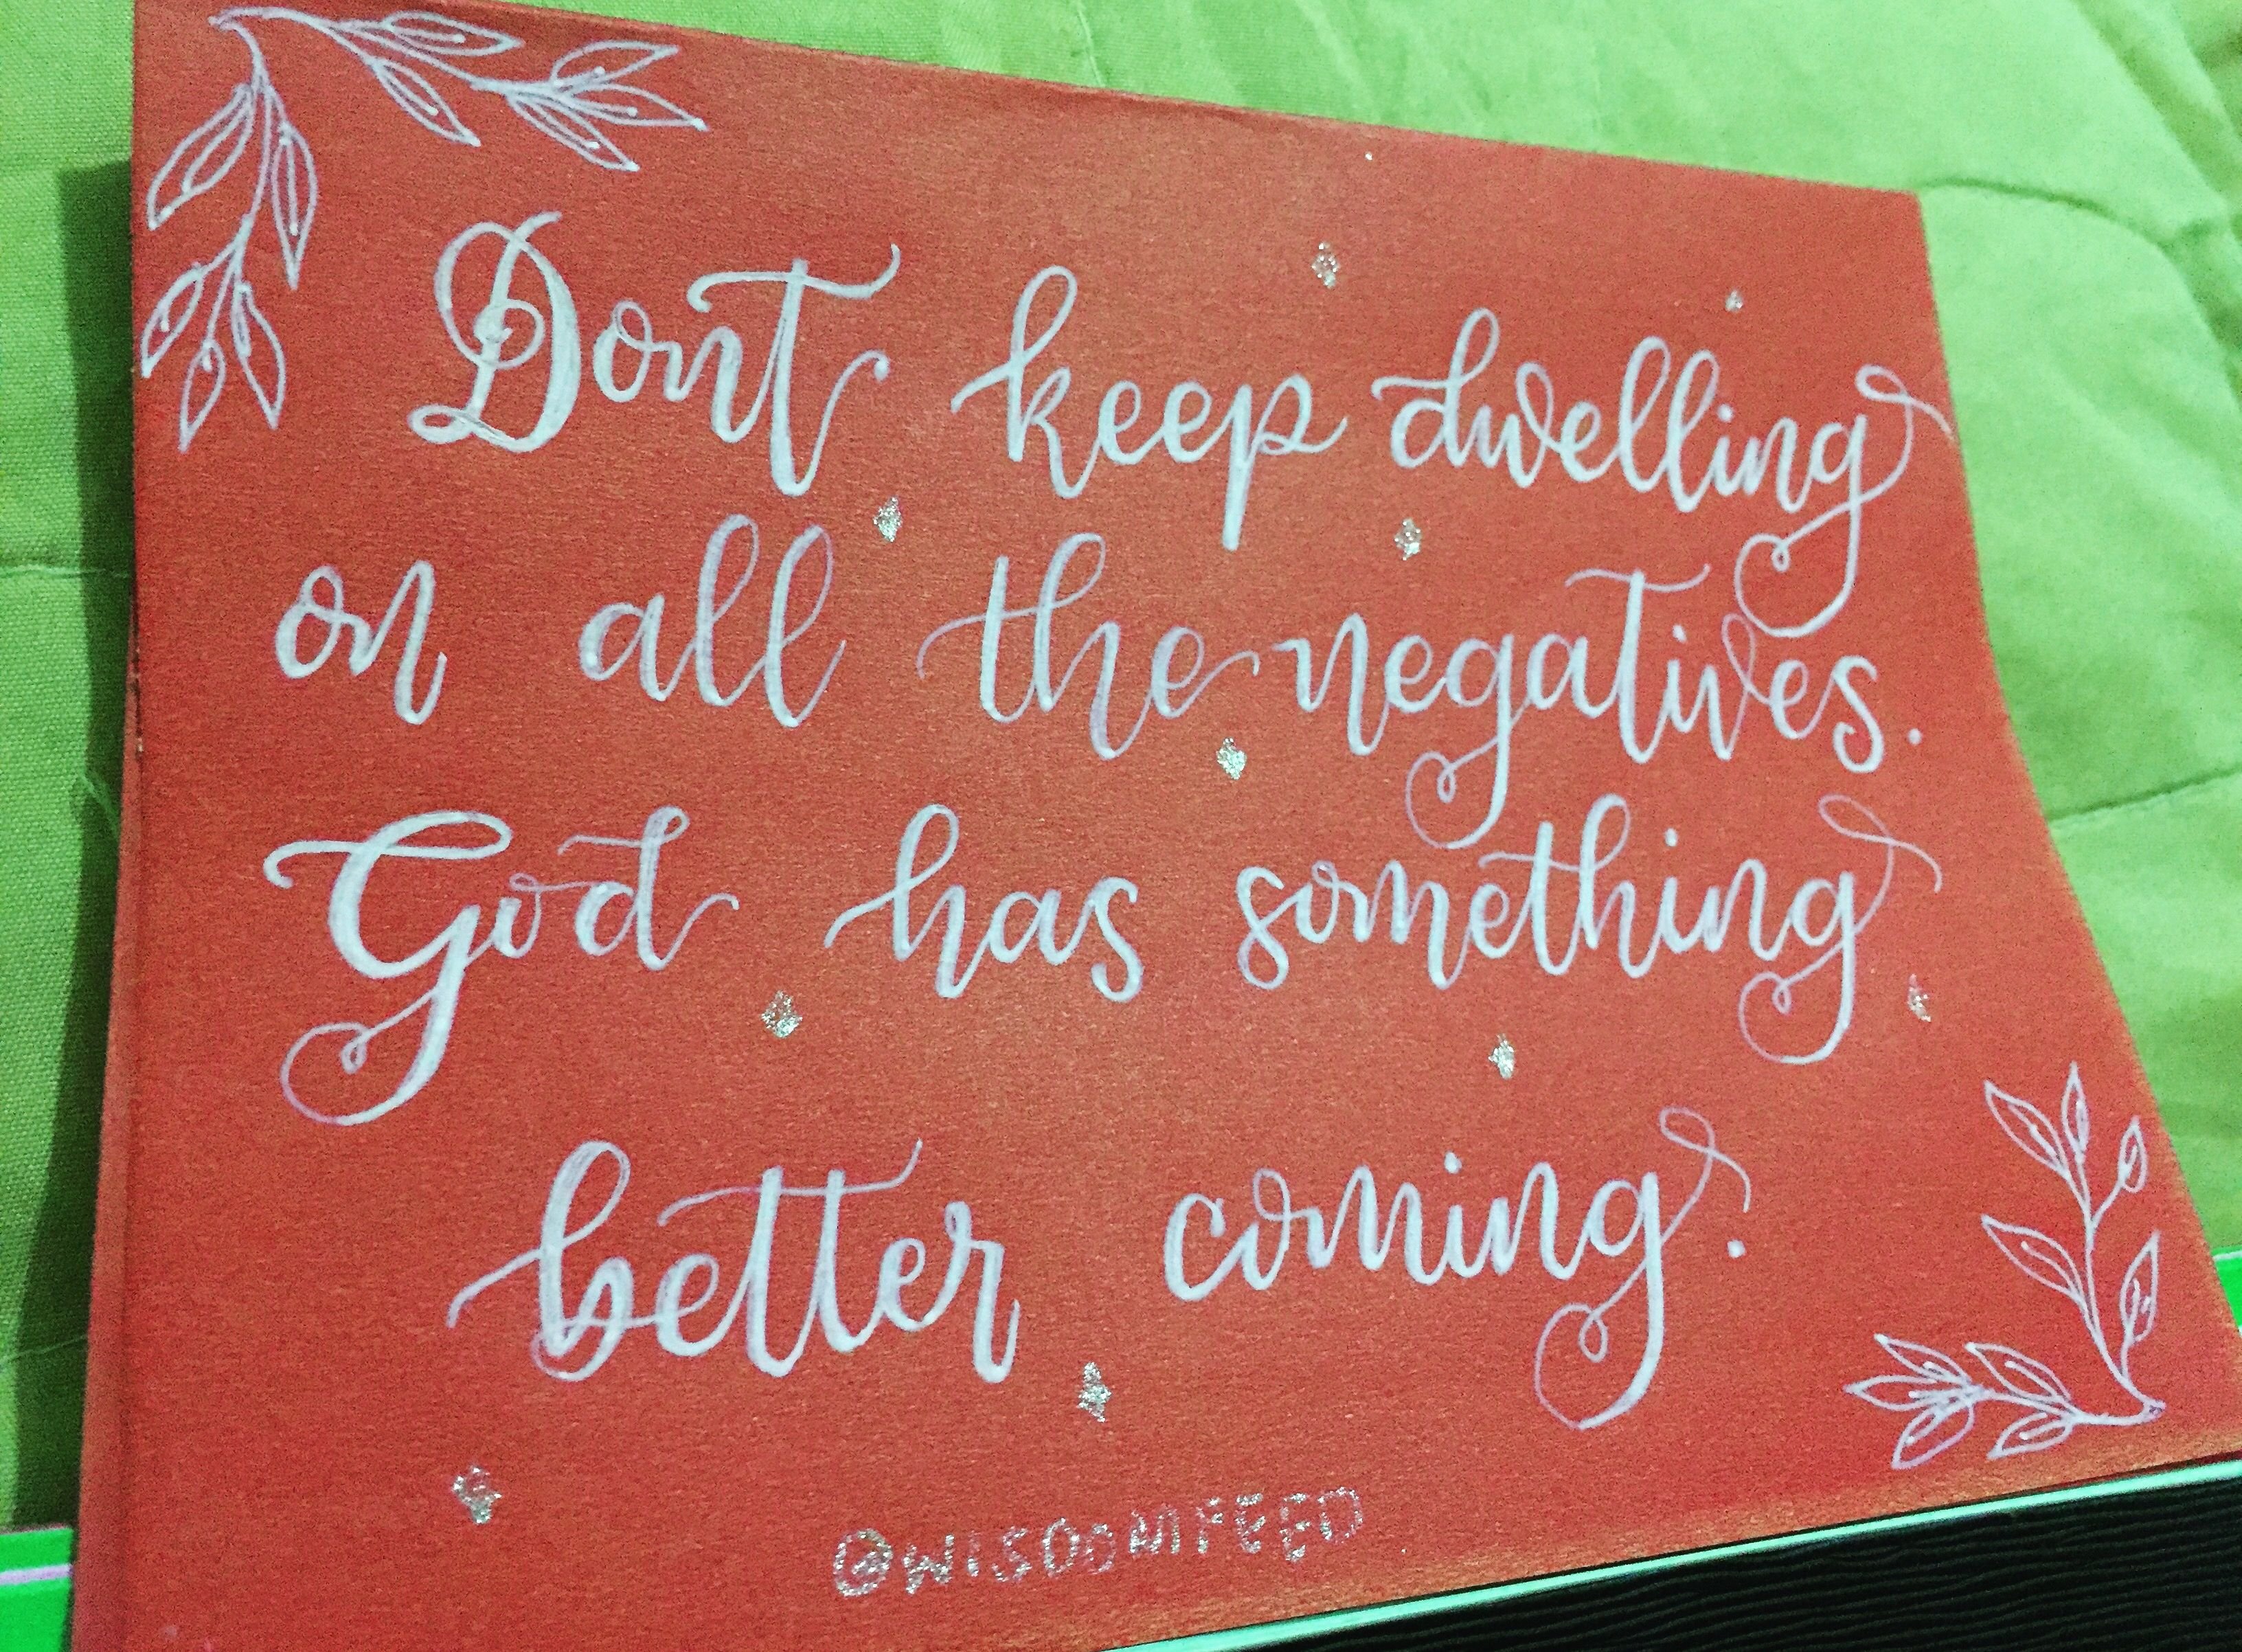 Dont keep dwelling
on all the negatives.
God has something
better coming.
@WISDOMFEED